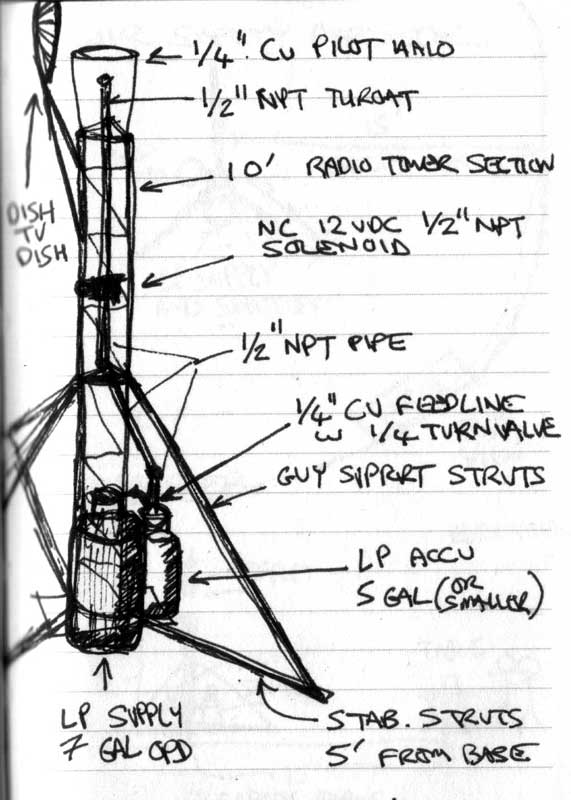 1/4" CU PILOT HALO
1/2" NPT THROAT
10' RADIO TOWER SECTION
DISH
TV
DISH
NC 12VDC 1/2" NPT
SOLENOID
1/2" NPT PIPE
1/4" CU FEEDLINE
W 1/4 TURN VALVE
GUY SUPPORT STRUTS
LP ACCU
5 GAL (OR
SMALLER)
LP SUPPLY
7 GAL OPD
STAB. STRUTS
5' FROM BASE